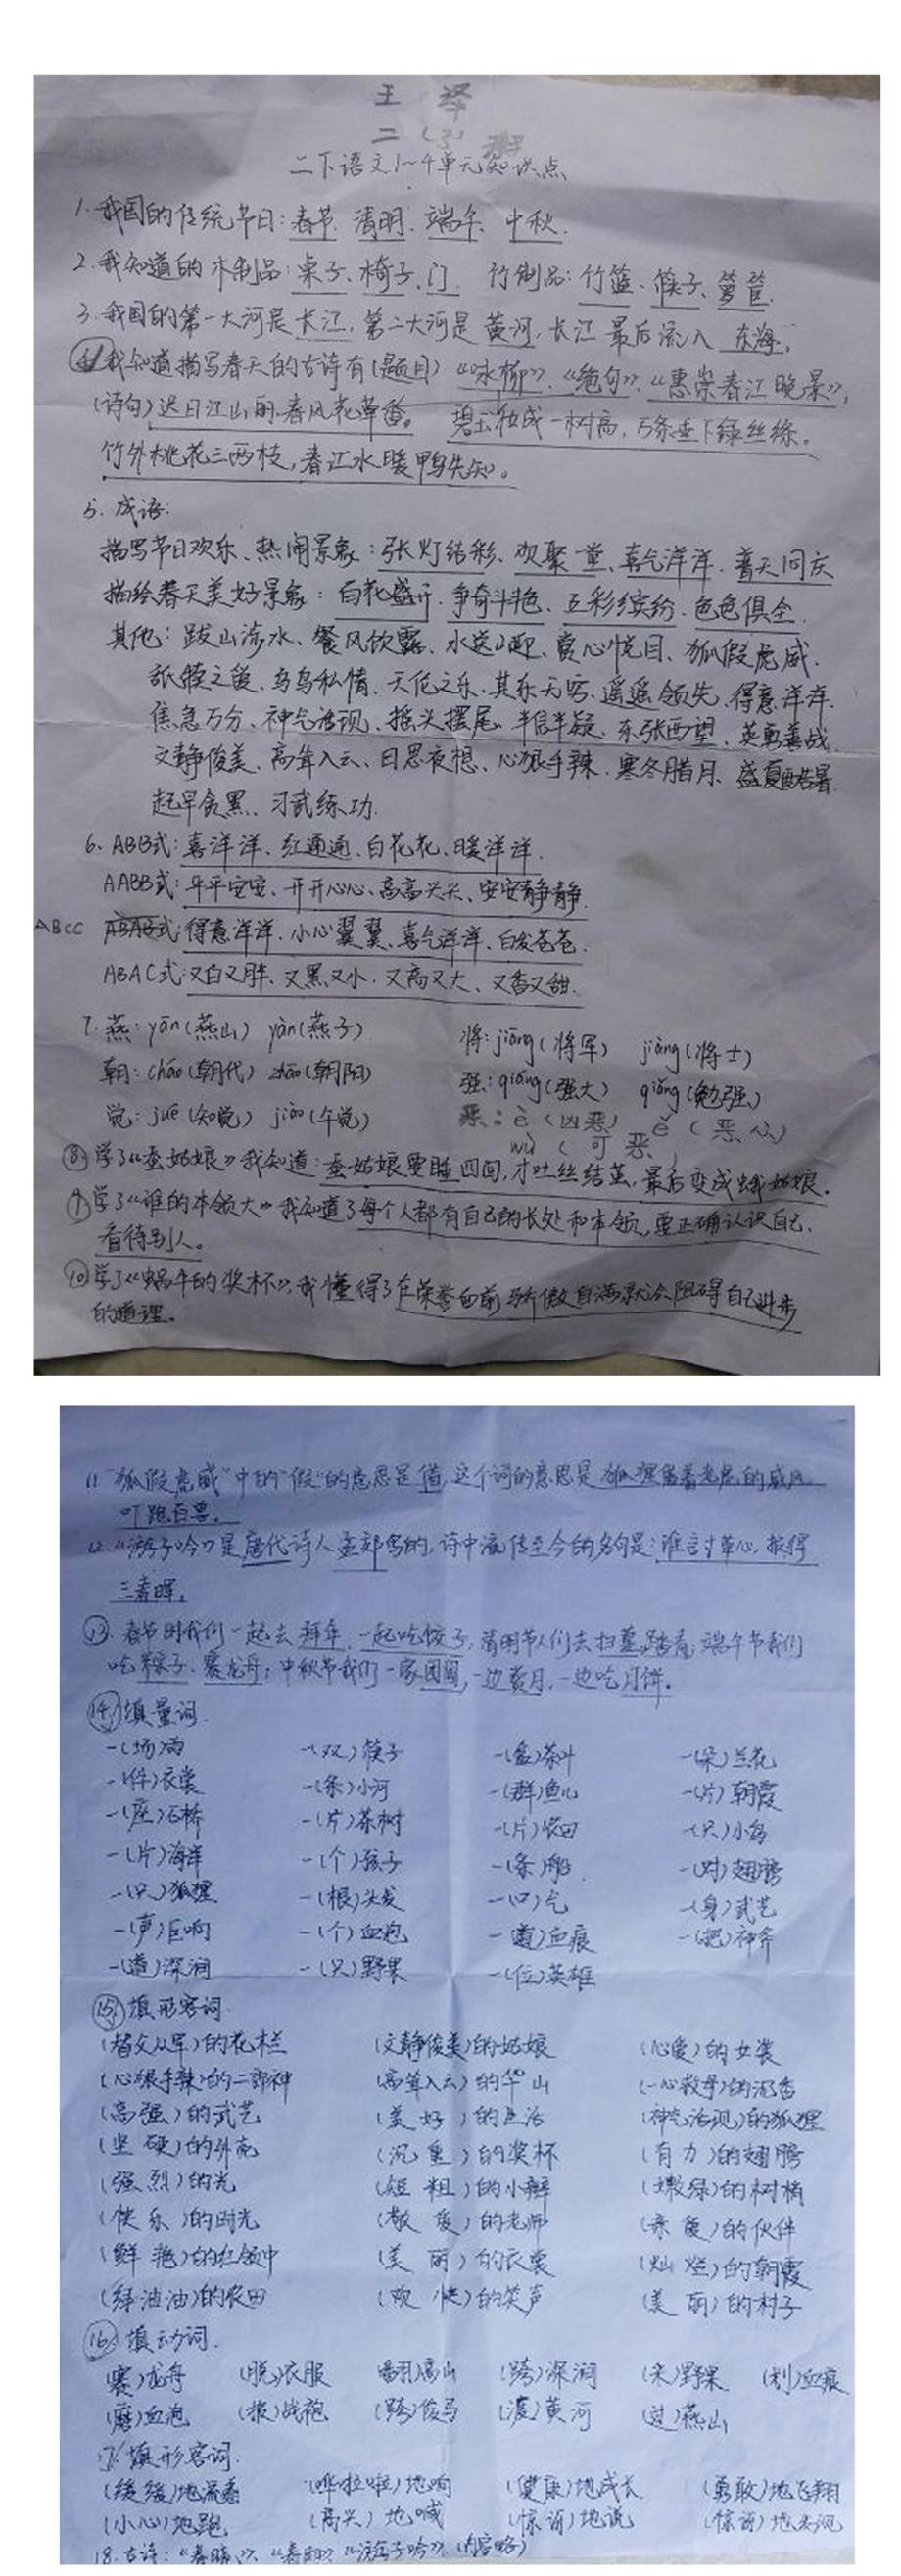 王 泽
二 (3) 班
二下语文1~4单元知识点
1. 我国的传统节日: 春节、清明、端午、中秋.
2. 我知道的木制品: 桌子、椅子、门. 竹制品: 竹篮、筷子、箩筐.
3. 我国的第一大河是长江, 第二大河是黄河, 长江最后流入 东海.
4. 我知道描写春天的古诗有(题目)《咏柳》、《绝句》、《惠崇春江晚景》,
(诗句)迟日江山丽,春风花草香。 碧玉妆成一树高,万条垂下绿丝绦。
竹外桃花三两枝,春江水暖鸭先知。
5. 成语:
描写节日欢乐、热闹景象: 张灯结彩、欢聚一堂、喜气洋洋、普天同庆
描绘春天美好景象: 百花盛开、争奇斗艳、五彩缤纷、色色俱全.
其他: 跋山涉水、餐风饮露、水送山迎、赏心悦目、狐假虎威、
舐犊之爱、乌鸟私情、天伦之乐、其乐无穷、遥遥领先、得意洋洋.
焦急万分、神气活现、摇头摆尾、半信半疑、东张西望、英勇善战
文静俊美、高耸入云、日思夜想、心狠手辣、寒冬腊月、盛夏酷暑
起早贪黑、习武练功.
6. ABB式: 喜洋洋、红通通、白花花、暖洋洋.
AABB式: 平平安安、开开心心、高高兴兴、安安静静.
ABCC ABAB式: 得意洋洋、小心翼翼、喜气洋洋、白发苍苍.
ABAC式: 又白又胖、又黑又小、又高又大、又香又甜.
7. 燕: yān(燕山) yàn(燕子) 将: jiāng(将军) jiàng(将士)
朝: cháo(朝代) zhāo(朝阳) 强: qiáng(强大) qiǎng(勉强)
觉: jué(知觉) jiào(午觉) 恶: è(凶恶) ě(恶心)
wù(可恶)
8. 学了《蚕姑娘》我知道: 蚕姑娘要睡四回,才吐丝结茧,最后变成蛾姑娘.
9. 学了《谁的本领大》我知道了每个人都有自己的长处和本领,要正确认识自己、
看待别人。
10. 学了《蜗牛的奖杯》,我懂得了在荣誉面前骄傲自满就会阻碍自己进步
的道理。
11. "狐假虎威"中的"假"的意思是借,这个词的意思是狐狸借着老虎的威风
吓跑百兽。
12. 《游子吟》是唐代诗人孟郊写的,诗中流传至今的名句是: 谁言寸草心,报得
三春晖。
13. 春节时我们一起去拜年,一起吃饺子; 清明节人们去扫墓,踏青; 端午节我们
吃粽子、赛龙舟; 中秋节我们一家团圆,一边赏月,一边吃月饼。
14. 填量词.
一(场)雨 一(双)筷子 一(盆)茶叶 一(朵)兰花
一(件)衣裳 一(条)小河 一(群)鱼儿 一(片)朝霞
一(座)石桥 一(片)茶树 一(片)农田 一(只)小鸟
一(片)海岸 一(个)孩子 一(条)船 一(对)翅膀
一(只)狐狸 一(根)头发 一(口)气 一(身)武艺
一(声)巨响 一(个)血泡 一(道)血痕 一(把)神斧
一(道)深涧 一(只)野果 一(位)英雄
15. 填形容词.
(替父从军)的花木兰 (文静俊美)的姑娘 (心爱)的女装
(心狠手辣)的二郎神 (高耸入云)的华山 (一心救母)的沉香
(高强)的武艺 (美好)的生活 (神气活现)的狐狸
(坚硬)的外壳 (沉重)的奖杯 (有力)的翅膀
(强烈)的光 (短粗)的小辫 (嫩绿)的树梢
(快乐)的时光 (敬爱)的老师 (亲爱)的伙伴
(鲜艳)的红领巾 (美丽)的衣裳 (灿烂)的朝霞
(绿油油)的农田 (欢快)的笑声 (美丽)的村子
16. 填动词.
(赛)龙舟 (脱)衣服 (翻)高山 (跨)深涧 (采)野果 (划)血痕
(磨)血泡 (披)战袍 (跨)骏马 (渡)黄河 (过)燕山
17. 填形容词.
(缓缓)地流着 (哗啦啦)地响 (健康)地成长 (勇敢)地飞翔
(小心)地跑 (高兴)地喊 (惊讶)地说 (惊讶)地发现
18. 古诗: 《春晴》、《春雨》《游子吟》. (内容略)